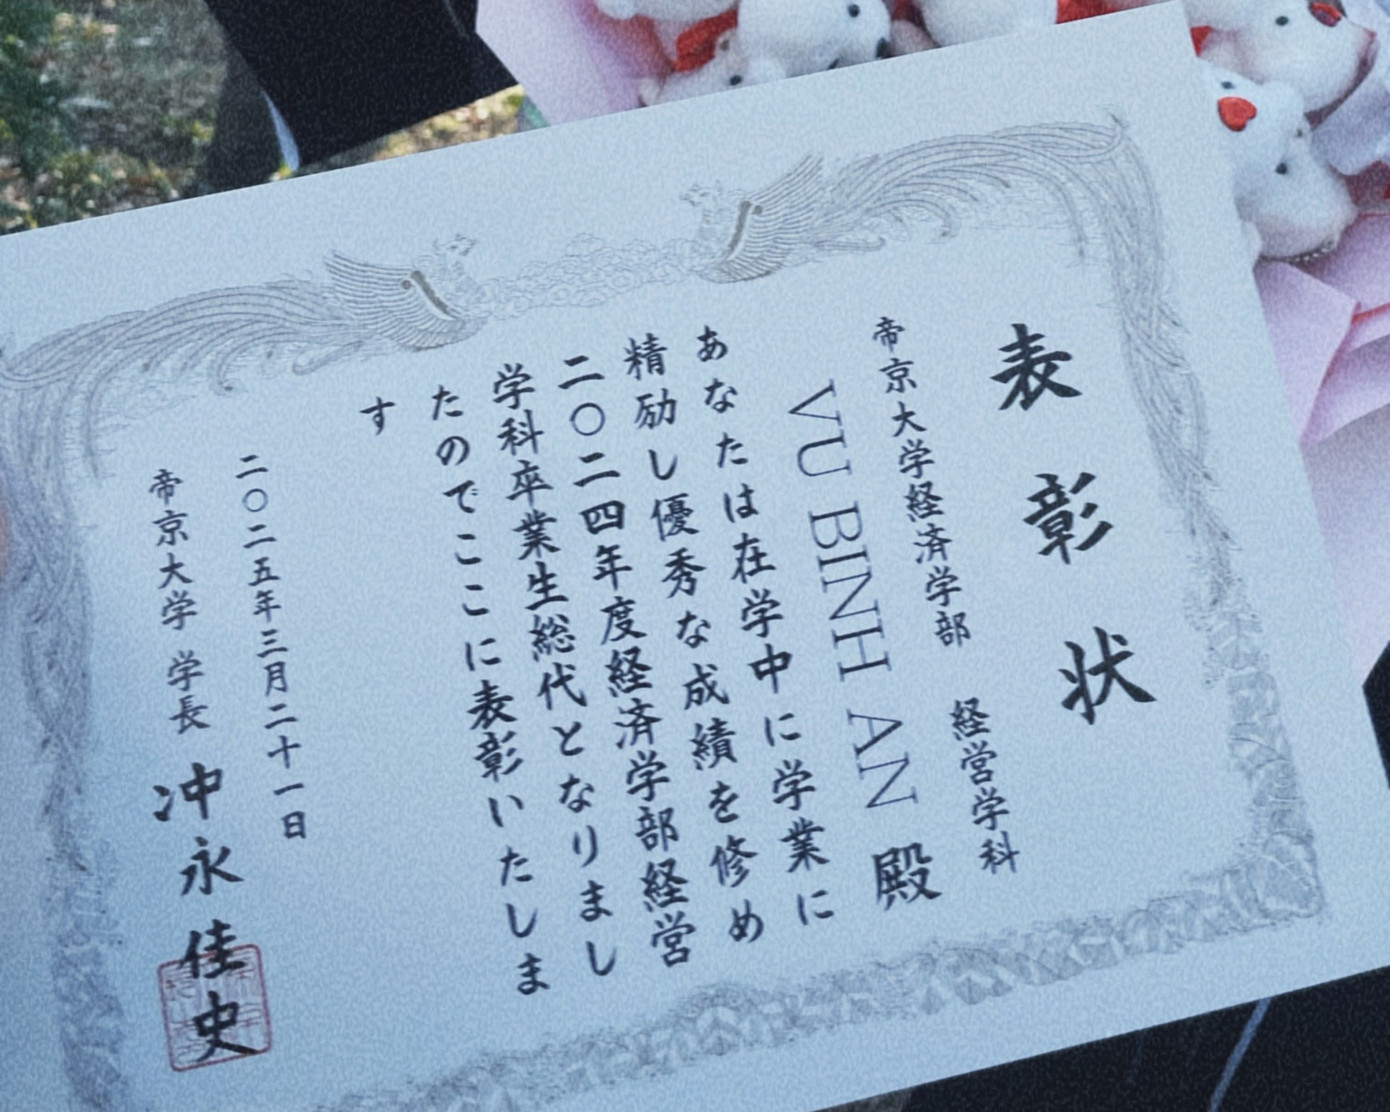 表彰状
帝京大学経済学部 経営学科
VU BINH AN 殿
あなたは在学中に学業に
精励し優秀な成績を修め
二〇二四年度経済学部経営
学科卒業生総代となりまし
たのでここに表彰いたしま
す
二〇二五年三月二十一日
帝京大学 学長 冲永佳史